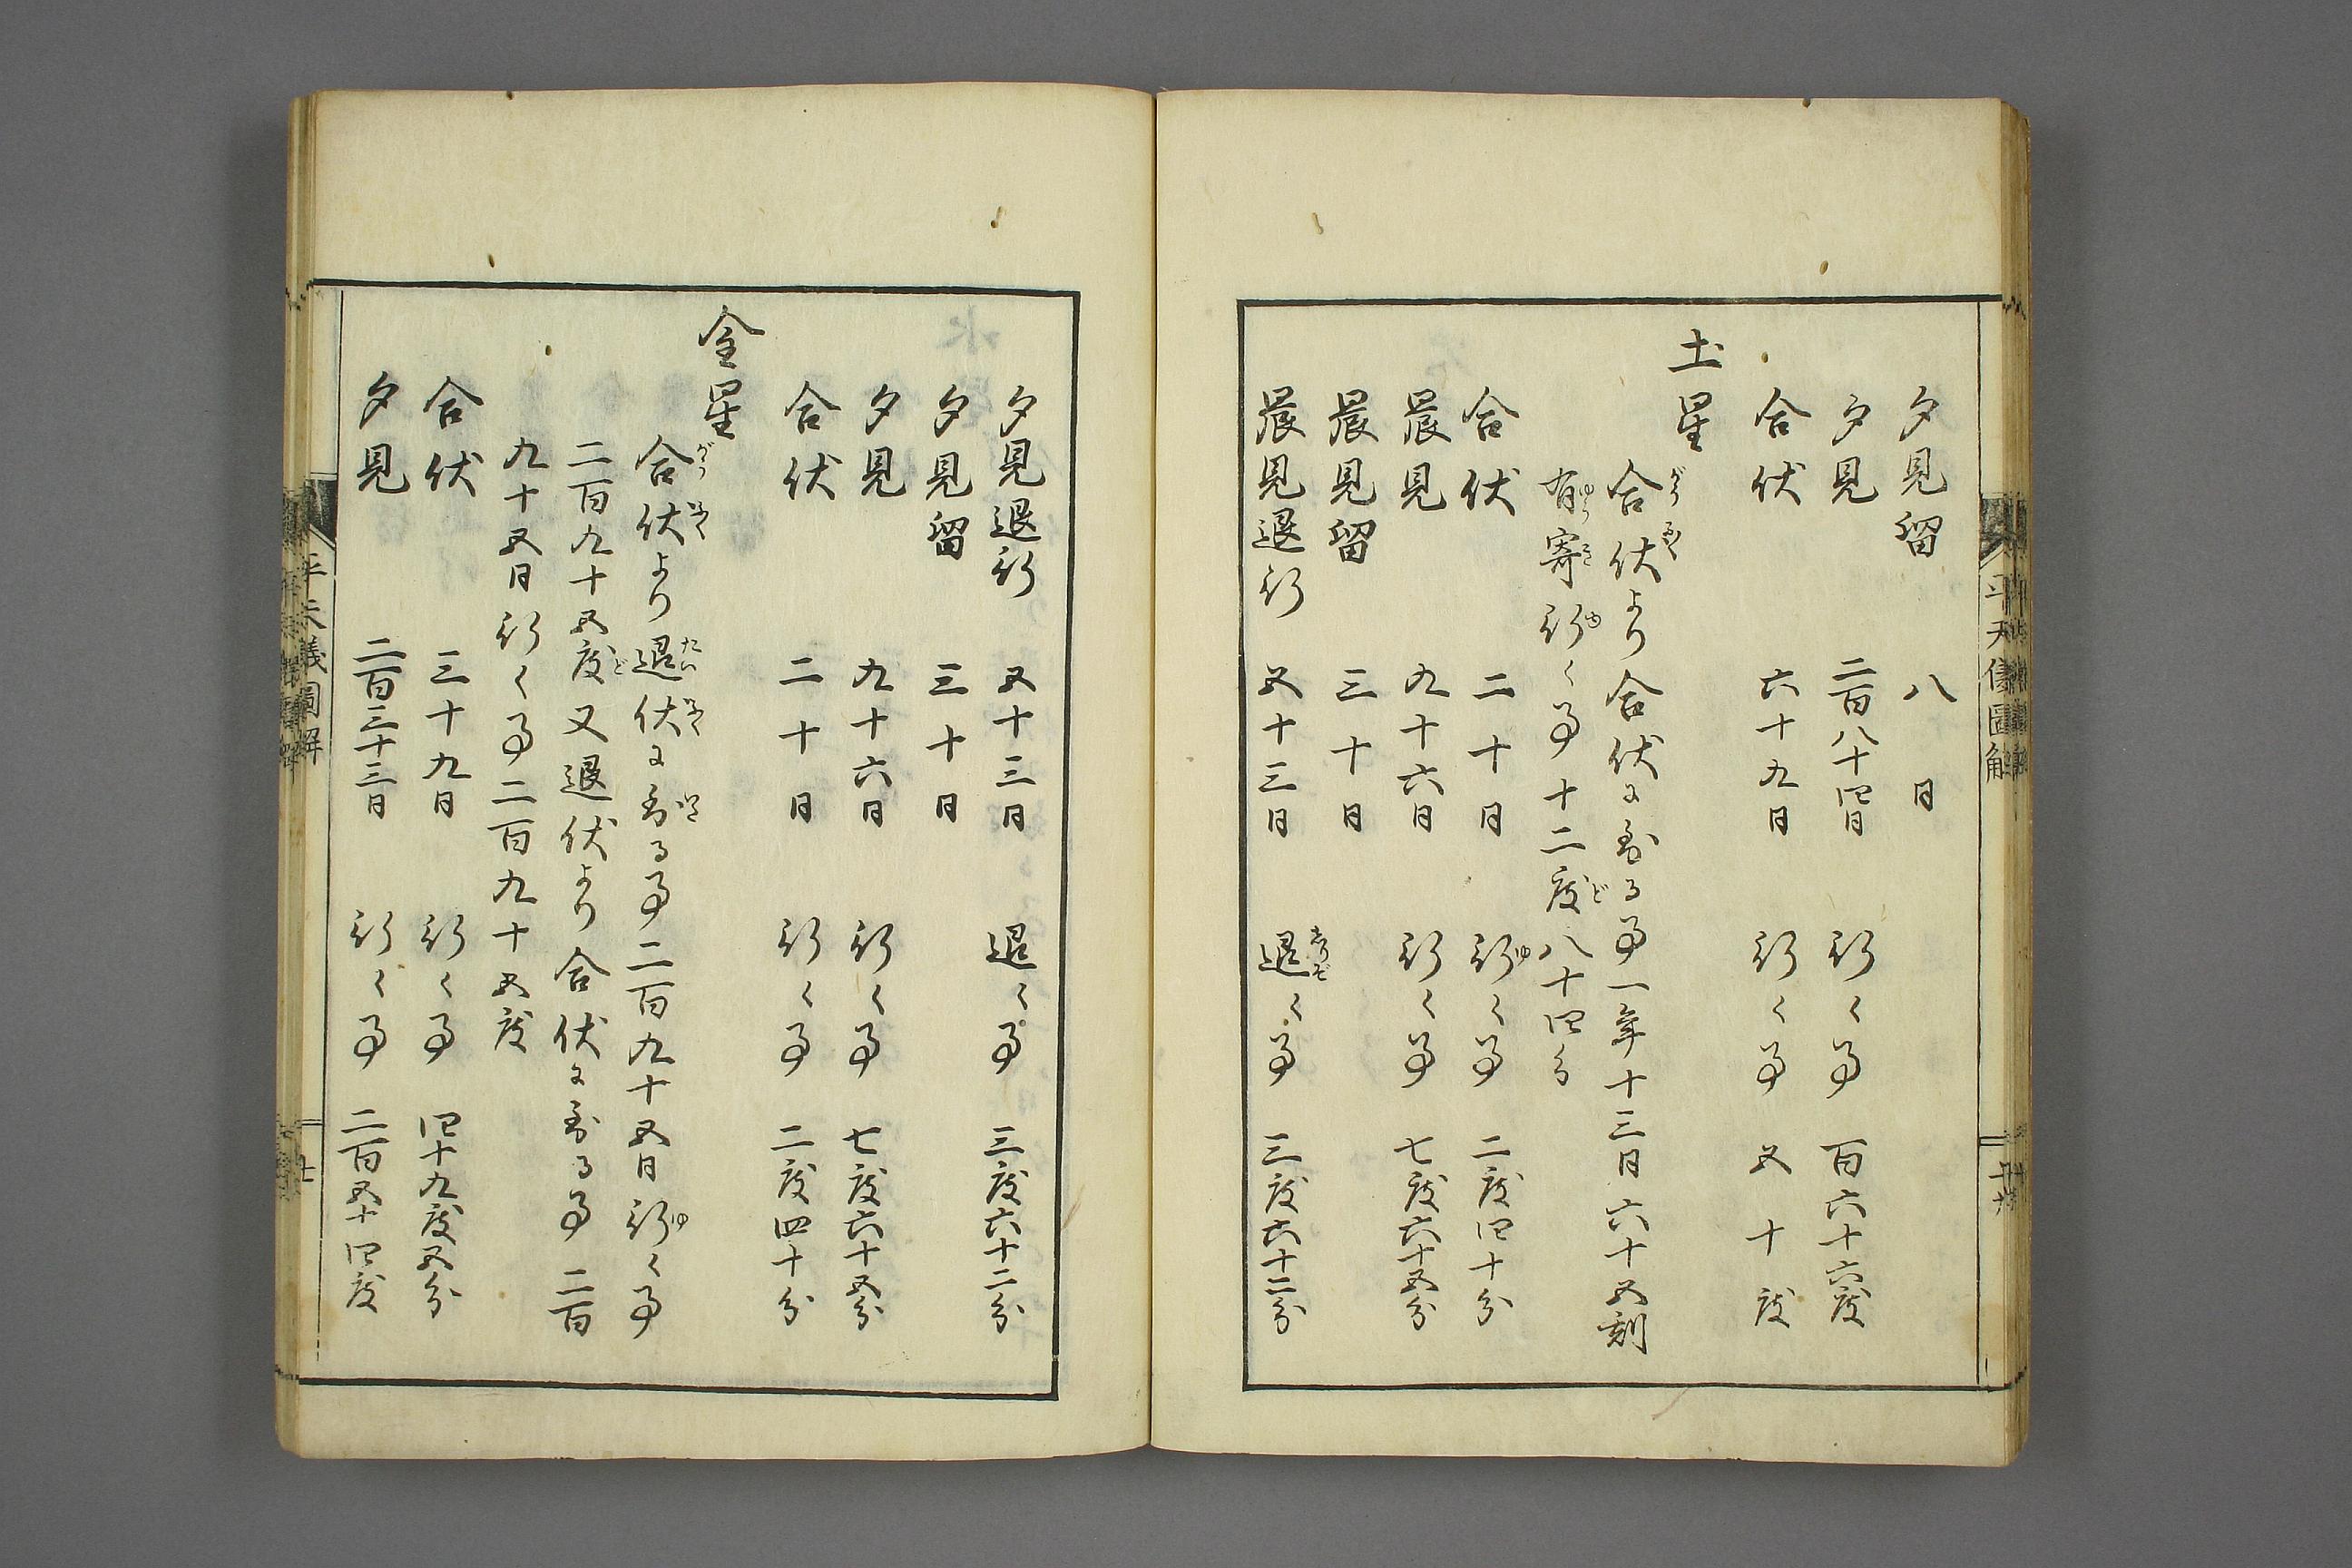 夕見留 八日
夕見 二百八十四日 行く事 百六十六度
合伏 六十九日 行く事 五十度
土星
合伏より合伏に至る事一年十三日六十五刻
有寄行く事十二度八十四分
合伏 二十日 行く事 二度四十分
晨見 九十六日 行く事 七度六十五分
晨見留 三十日
晨見退行 五十三日 退く事 三度六十二分
夕見退行 五十三日 退く事 三度六十二分
夕見留 三十日
夕見 九十六日 行く事 七度六十五分
合伏 二十日 行く事 二度四十分
金星
合伏より退伏に至る事二百九十五日行く事
二百九十五度又退伏より合伏に至る事二百
九十五日行く事二百九十五度
合伏 三十九日 行く事 四十九度五分
夕見 二百三十三日 行く事 二百五十四度
平天儀圖解